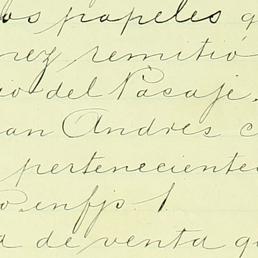 os papeles q
rez remitió
io del Pasaje.
an Andrés c
pertenecientes
o. enfjs. 1
a de venta qu